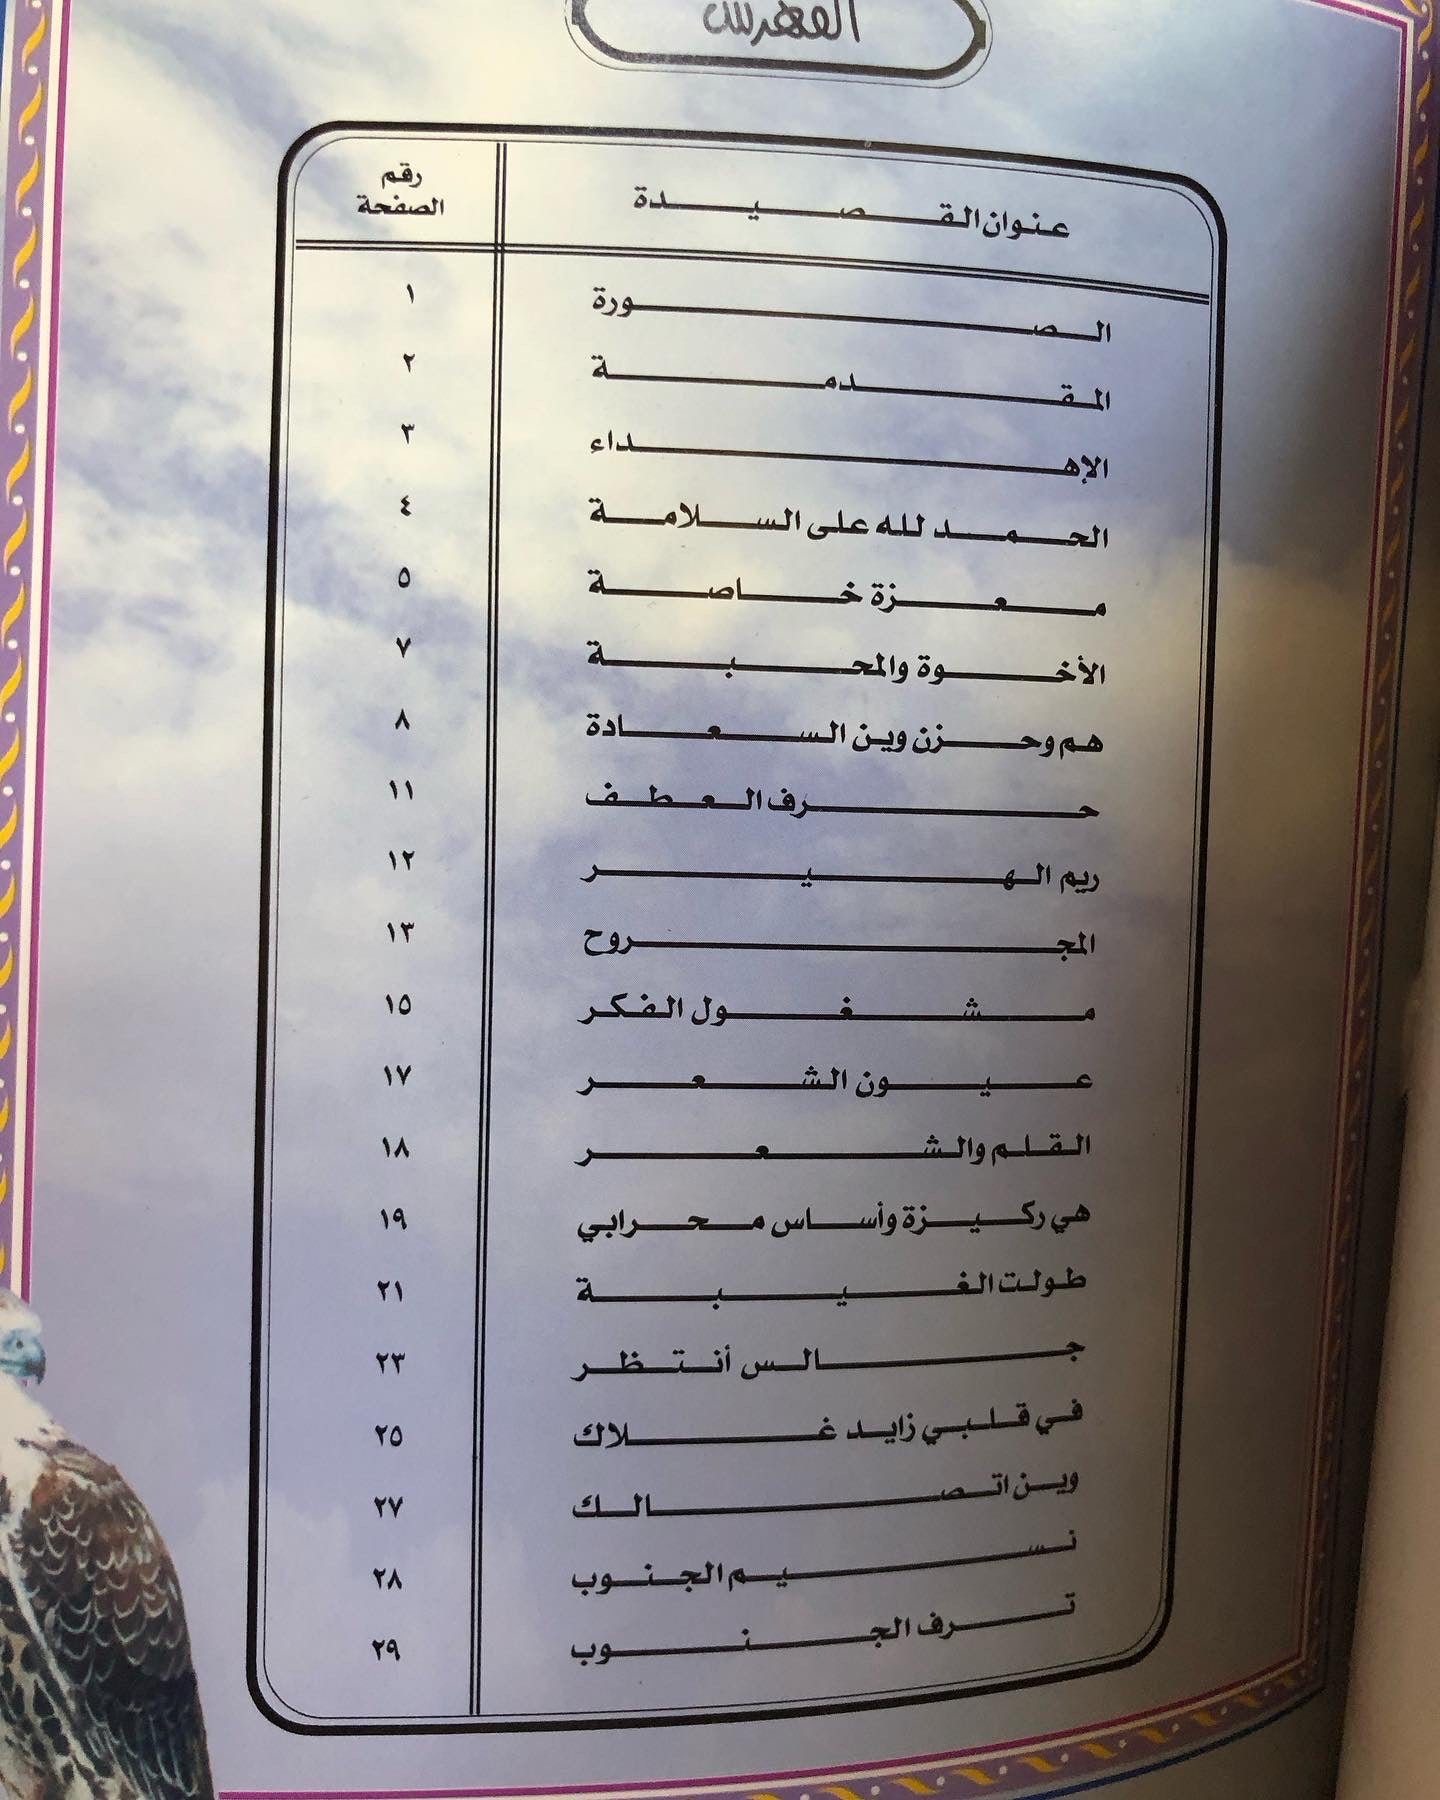 الفهرس
عنوان القصيدة رقم الصفحة
الصورة ١
المقدمة ٢
الإهداء ٣
الحمد لله على السلامة ٤
معزة خاصة ٥
الأخوة والمحبة ٧
هم وحزن وين السعادة ٨
حرف العطف ١١
ريم الهير ١٢
المجروح ١٣
مشغول الفكر ١٥
عيون الشعر ١٧
القلم والشعر ١٨
هي ركيزة وأساس محرابي ١٩
طولت الغيبة ٢١
جالس أنتظر ٢٣
في قلبي زايد غلاك ٢٥
وين اتصالك ٢٧
نسيم الجنوب ٢٨
ترف الجنوب ٢٩